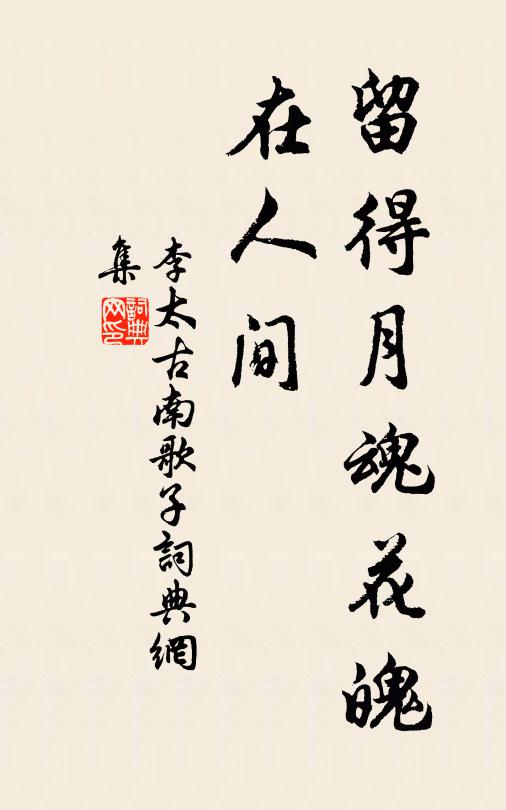 留得月魂花魄
在人间
李太古南歌子詞典網
集
詞典
网印